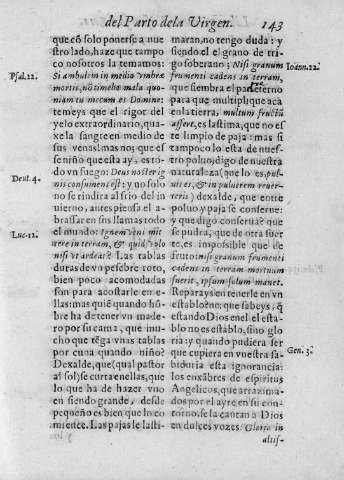 del Parto dela Virgen. 143
que cõ solo ponerse a nue
stro lado, haze que tampo
co nosotros la temamos:
Si ambulem in medio vmbræ
mortis, nõ timebo mala quo-
niam tu mecum es Domine:
temeys que el rigor del
yelo extraordinario, qua-
xe la sangre en medio de
sus venas? mas no; que es
se niño que esta ay, es to-
do vn fuego: Deus noster ig
nis consumens est: y no solo
no se rindira al frio del in
uierno, antes piensa el a-
brassar en sus llamas todo
el mundo: Ignem veni mit
tere in terram, & quid volo
nisi vt ardeat? Las tablas
duras de vn pesebre toto,
bien poco acomodadas
son para acostarle en e-
llas: mas quiẽ quando hõ-
bre ha de tener vn made-
ro por su cama, que mu-
cho que tẽga vnas tablas
por cuna quando niño?
Dexalde, que (qual pastor
al sol) se curta en ellas, que
lo que ha de hazer vno
en siendo grande, desde
pequeño es bien que lo co
mience. Las pajas le lasti-
maran, no tengo duda: y
siendo el el grano de tri-
go soberano; Nisi granum
frumenti cadens in terram,
que siembra el padre eterno
para que multiplique aca
en la tierra, multum fructũ
affert, es lastima, que no es
te limpio de paja: mas si
tampoco lo esta de nues-
tro poluo; digo de nuestra
naturaleza (que lo es, pul-
uis es, & in puluerem reuer-
teris) dexalde, que entre
poluo y paja se conserue:
y que digo conserua? que
se pudra, que de otra suer
te, es impossible que de
fruto: nisi granum frumenti
cadens in terram mortuum
fuerit, ipsum solum manet.
Reparays en tenerle en vn
establo? no: que sabeys, q̃
estando Dios en el el esta-
blo no es establo, sino glo
ria: y quando pudiera ser
que cupiera en vuestra sa
biduria esta ignorancia:
los enxãbres de espiritus
Angelicos, que arrazima-
dos por el ayre en su con-
torno, se la cantan a Dios
en dulces vozes: Gloria in
altis-
Psal. 22.
Deut. 4.
Luc. 12.
Ioãnn. 12.
Gen. 3.